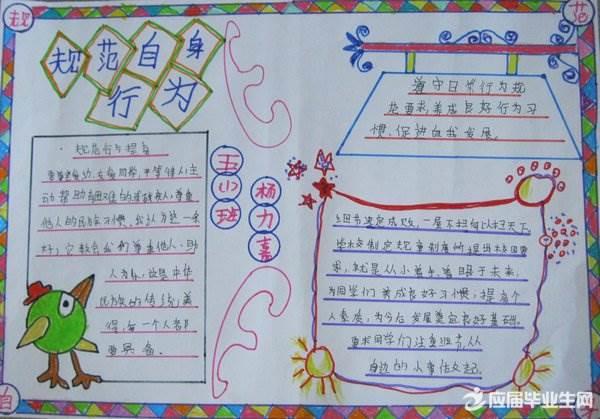 规
范
自
规范自身
行为
遵守日常行为规
范要求,养成良好行为习
惯,促进自我发展。
五
小
班
杨
力
嘉
规范行为 
动帮助困难的 尊重
他人的 习惯。我认为这一条
好,它教会我们尊重他人、助
人为乐,这是中华
民族的传统美
德,每一个人都
要具备。
细节决定成败,一屋不扫何以扫天下。
学校制定规章制度 提出校园要
求,就是从小着手,着眼于未来,
为同学们养成良好习惯,提高个
人素质,为今后发展奠定良好基础。
要求同学们注意班 从
自边的小事做起。
应届毕业生网